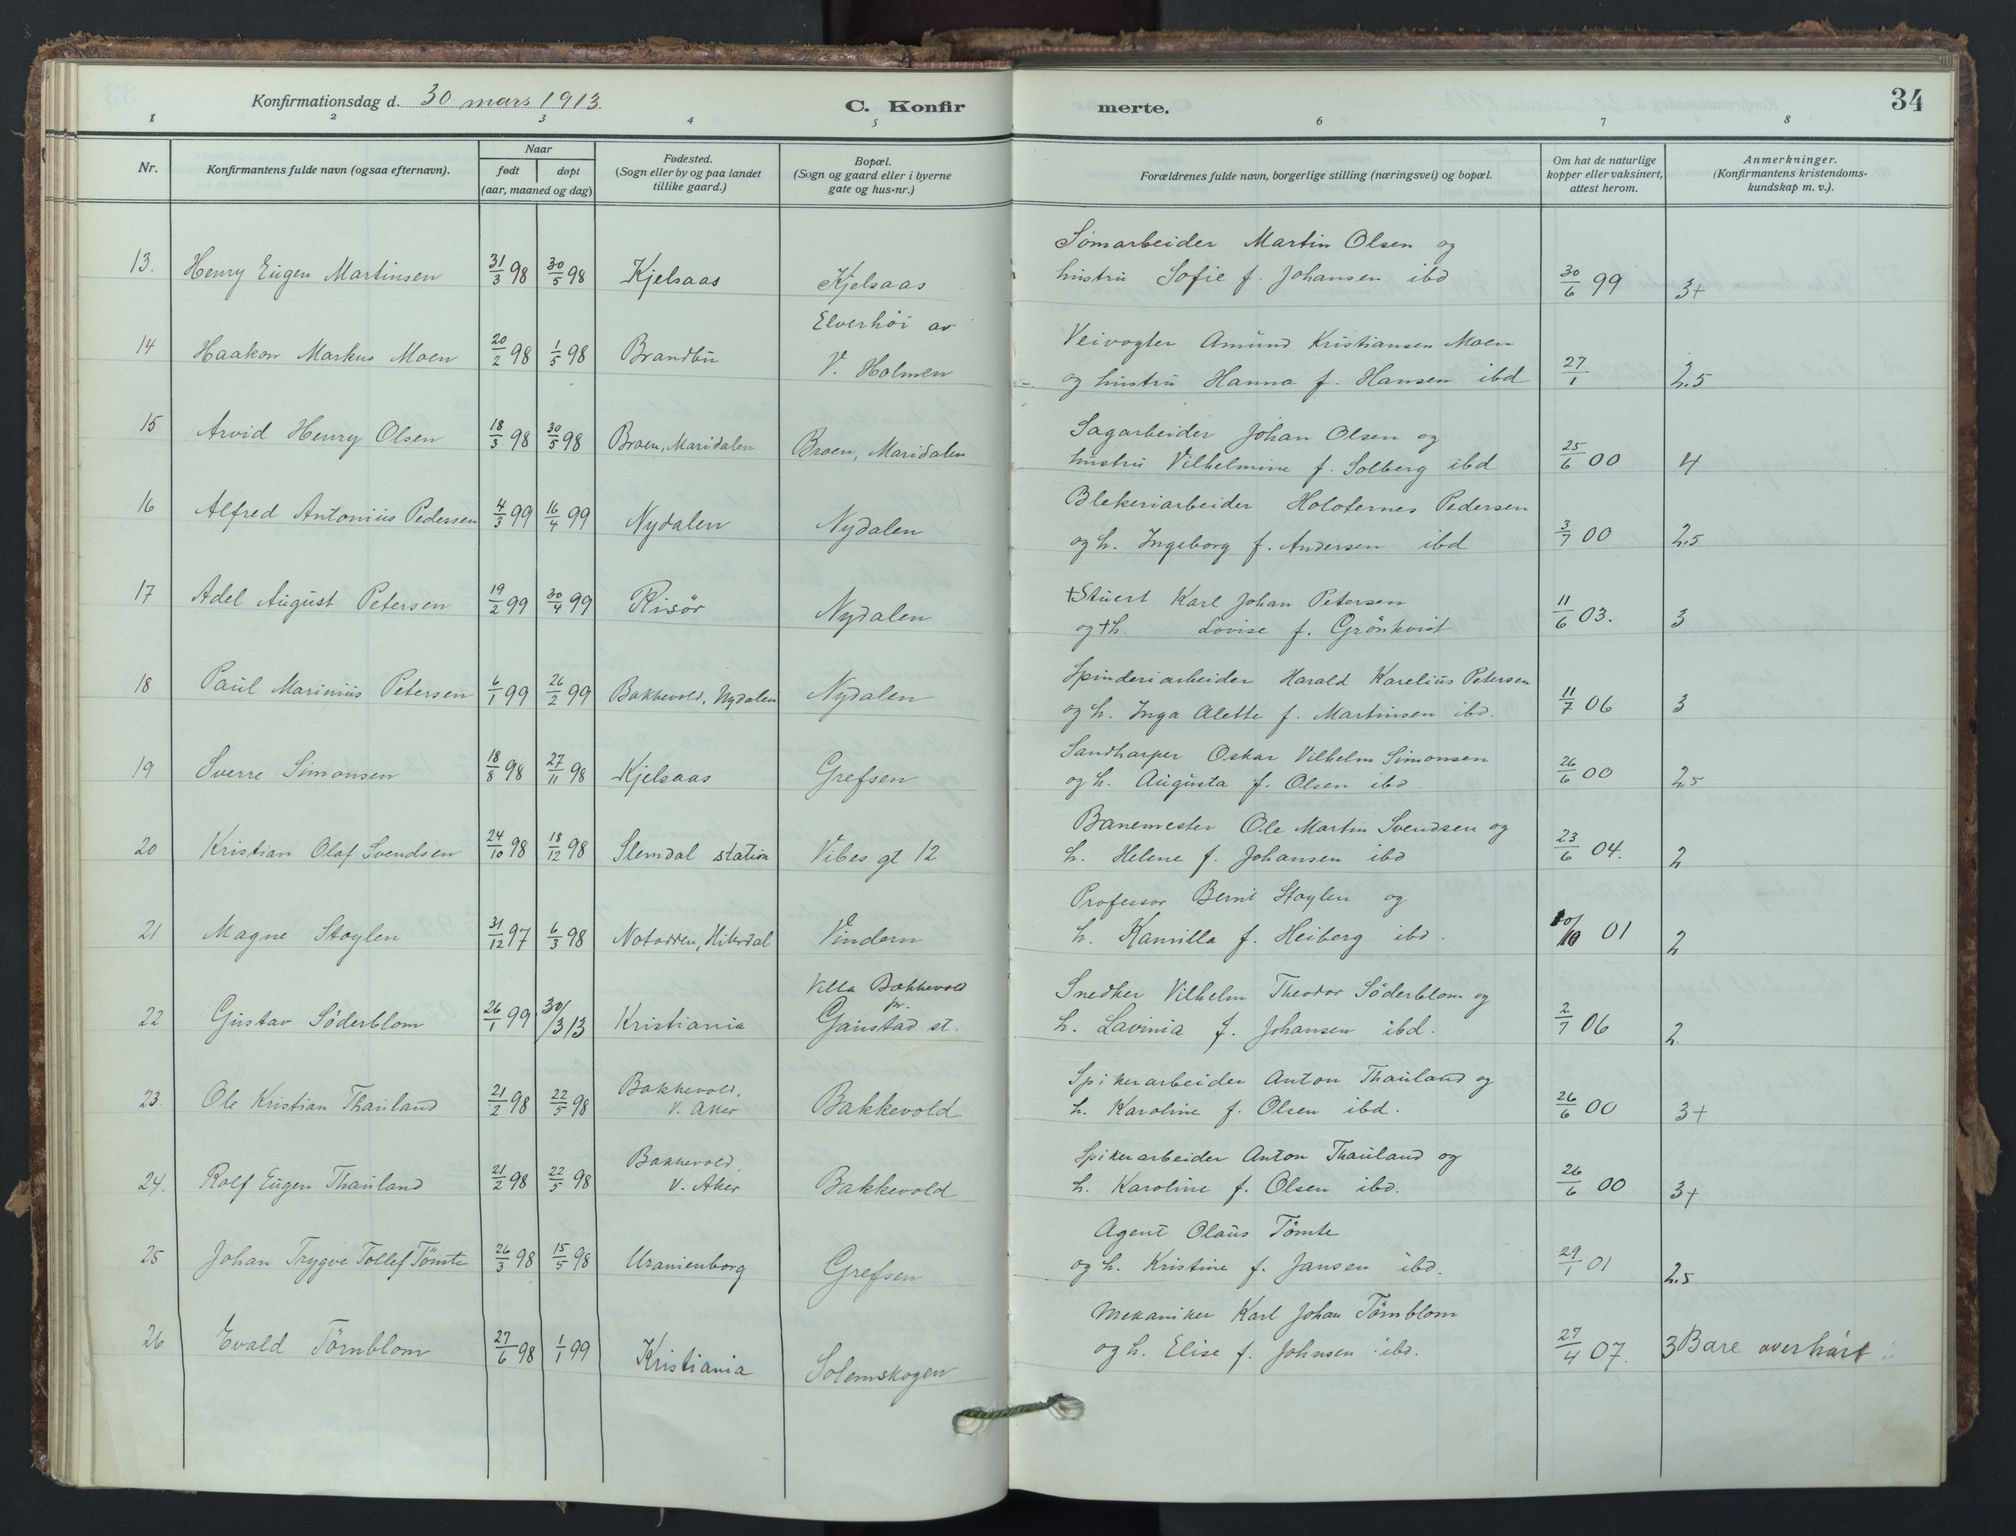 Konfirmationsdag d. 30 mars 1913
C. Konfirmerte.
34
1 2 3 4 5 6 7 8
Nr.
Konfirmantens fulde navn (ogsaa efternavn).
Naar
født døpt
(aar, maaned og dag)
Fødested.
(Sogn eller by og paa landet
tillike gaard.)
Bopæl.
(Sogn og gaard eller i byerne
gate og hus-nr.)
Forældrenes fulde navn, borgerlige stilling (næringsvei) og bopæl.
Om hat de naturlige
kopper eller vaksinert,
attest herom.
Anmerkninger.
(Konfirmantens kristendoms-
kundskap m. v.)
13. Henry Eugen Martinsen 31/3 98 30/5 98 Kjelsaas Kjelsaas
Sømarbeider Martin Olsen og
hustru Sofie f. Johansen ibd 30/6 99 3+
14 Haakon Markus Moen 20/2 98 1/5 98 Brandbu Elverhöi av
V. Holmen
Veivogter Amund Kristiansen Moen
og hustru Hanna f. Hansen ibd 27/1 2.5
15 Arvid Henry Olsen 18/3 98 30/5 98 Braen, Maridalen Braen, Maridalen
Sagarbeider Johan Olsen og
hustru Vilhelmine f. Solberg ibd 25/6 00 4
16 Alfred Antonius Pedersen 4/3 99 16/4 99 Nydalen Nydalen
Blekeriarbeider Holofernes Pedersen
og h. Ingeborg f. Andersen ibd 3/7 00 2.5
17 Adel August Petersen 19/2 99 30/4 99 Risör Nydalen
+Stuert Karl Johan Petersen
og +h. Lovise f. Grönkvist 11/6 03. 3
18 Paul Marinius Petersen 6/1 99 26/2 99 Bakkevold, Nydalen Nydalen
Spinderiarbeider Harald Karelius Petersen
og h. Inga Alette f. Martinsen ibd. 11/7 06 3
19 Sverre Simonsen 18/8 98 27/11 98 Kjelsaas Grefsen
Sandharper Oskar Vilhelm Simonsen
og h. Augusta f. Olsen ibd. 26/6 00 2.5
20 Kristian Olaf Svendsen 24/10 98 18/12 98 Slemdal station Vibes gt 12
Banemester Ole Martin Svendsen og
h. Helene f. Johansen ibd 23/6 04. 2
21 Magne Stöylen 31/12 97 6/3 98 Notodden, Hiterdal Vindern
Professor Bernt Stöylen og
h. Kamilla f. Heiberg ibd. 10/10 01 2
22 Gustav Söderblom 26/1 99 30/3 13 Kristiania Villa Bækkevold
pr.
Gaustad st.
Snedker Vilhelm Theodor Söderblom og
h. Lavinia f. Johansen ibd. 2/7 06 2.
23. Ole Kristian Thauland 21/2 98 22/5 98 Bakkevold,
V. Aker Bakkevold
Spikerarbeider Anton Thauland og
h. Karoline f. Olsen ibd. 26/6 00 3+
24. Rolf Eugen Thauland 21/2 98 22/5 98 Bakkevold,
V. Aker Bakkevold
Spikerarbeider Anton Thauland og
h. Karoline f. Olsen ibd. 26/6 00 3+
25 Johan Trygve Tollef Tömte 26/3 98 15/5 98 Uranienborg Grefsen
Agent Olaus Tömte
og h. Kristine f. Jansen ibd. 29/1 01 2.5
26 Evald Törnblom 27/6 98 1/1 99 Kristiania Solemskogen
Mekaniker Karl Johan Törnblom
og h. Elise f. Johnsen ibd. 27/4 07. 3 Bare overhört